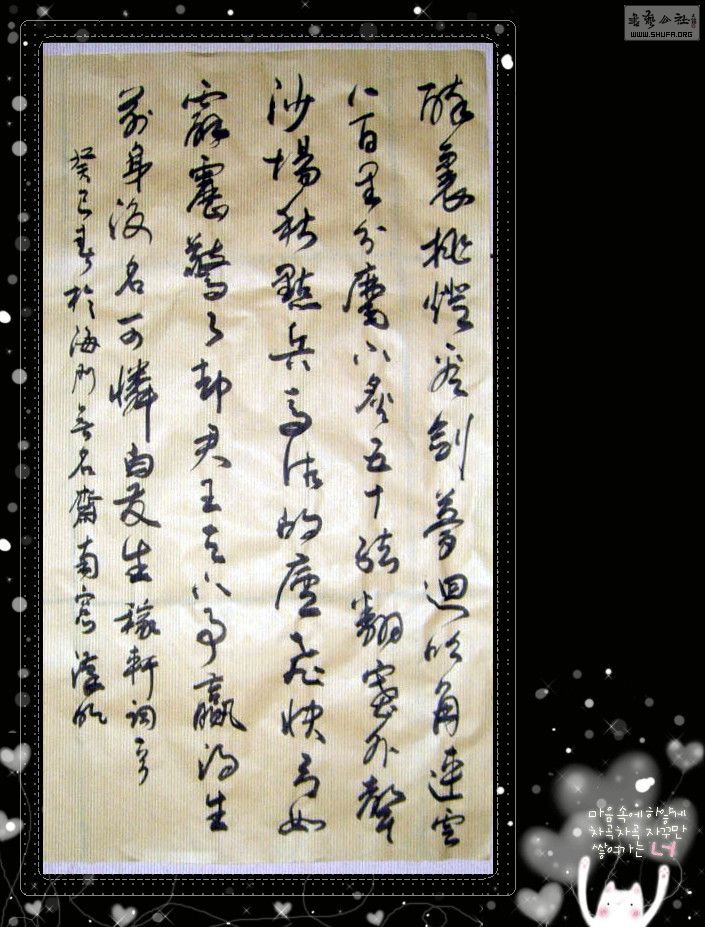 醉裏挑燈看劍夢迴吹角連営
八百里分麾下炙五十絃翻塞外聲
沙場秋點兵馬作的廬飛快弓如
霹靂驚了却君王天下事贏得生
前身後名可憐白发生稼軒詞
癸巳春於海門無名齋南窗
WWW.SHUFA.ORG
마음 속에 하얗게
차곡차곡 자꾸만
쌓여가는 너